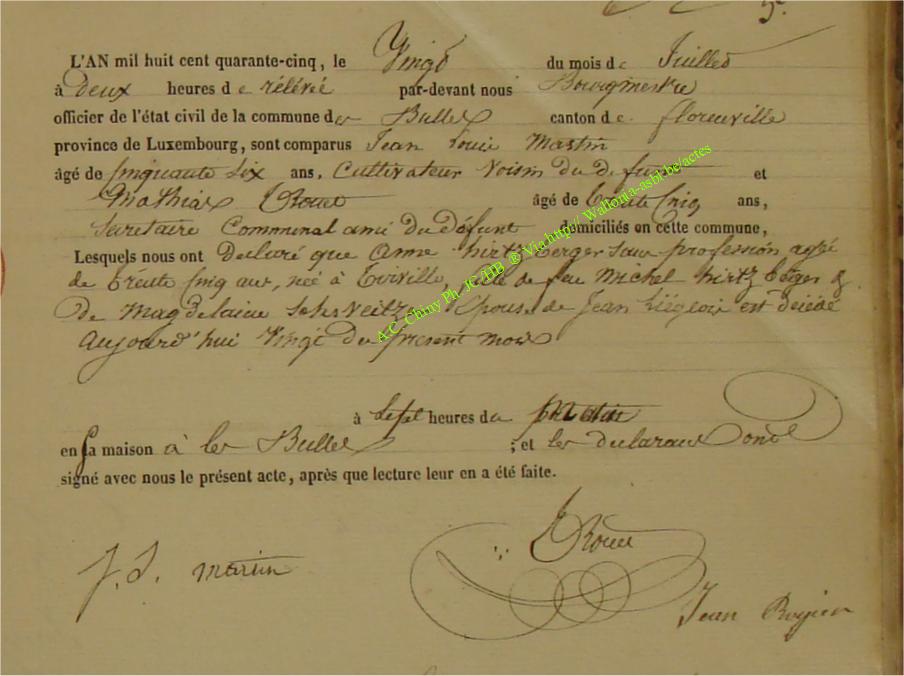 5e
L'AN mil huit cent quarante-cinq, le Vingt du mois de Juillet
à deux heures de rélévée par-devant nous Bourgmestre
officier de l'état civil de la commune des Bulles canton de florenville
province de Luxembourg, sont comparus Jean Louis Martin
âgé de Cinquante Six ans, Cultivateur Voisin du défunt et
Mathias Roue âgé de trente Cinq ans,
Secretaire Communal ami du défunt domiciliés en cette commune,
Lesquels nous ont Declaré que anne hirtzberger sans profession agée
de trente Cinq ans, née à fille de feu Michel hirtzberger &
De Magdelaine Schweitzer Epouse de Jean Liégeois est décédé
Aujourd'hui Vingt du present mois
à Sept heures du matin
en Sa maison à les Bulles ; et les declarans ont
signé avec nous le présent acte, après que lecture leur en a été faite.
J. L. Martin
Roue
Jean
A.C. Chiny Ph. JC/HB ® Via http// Wallonia-asbl.be/actes